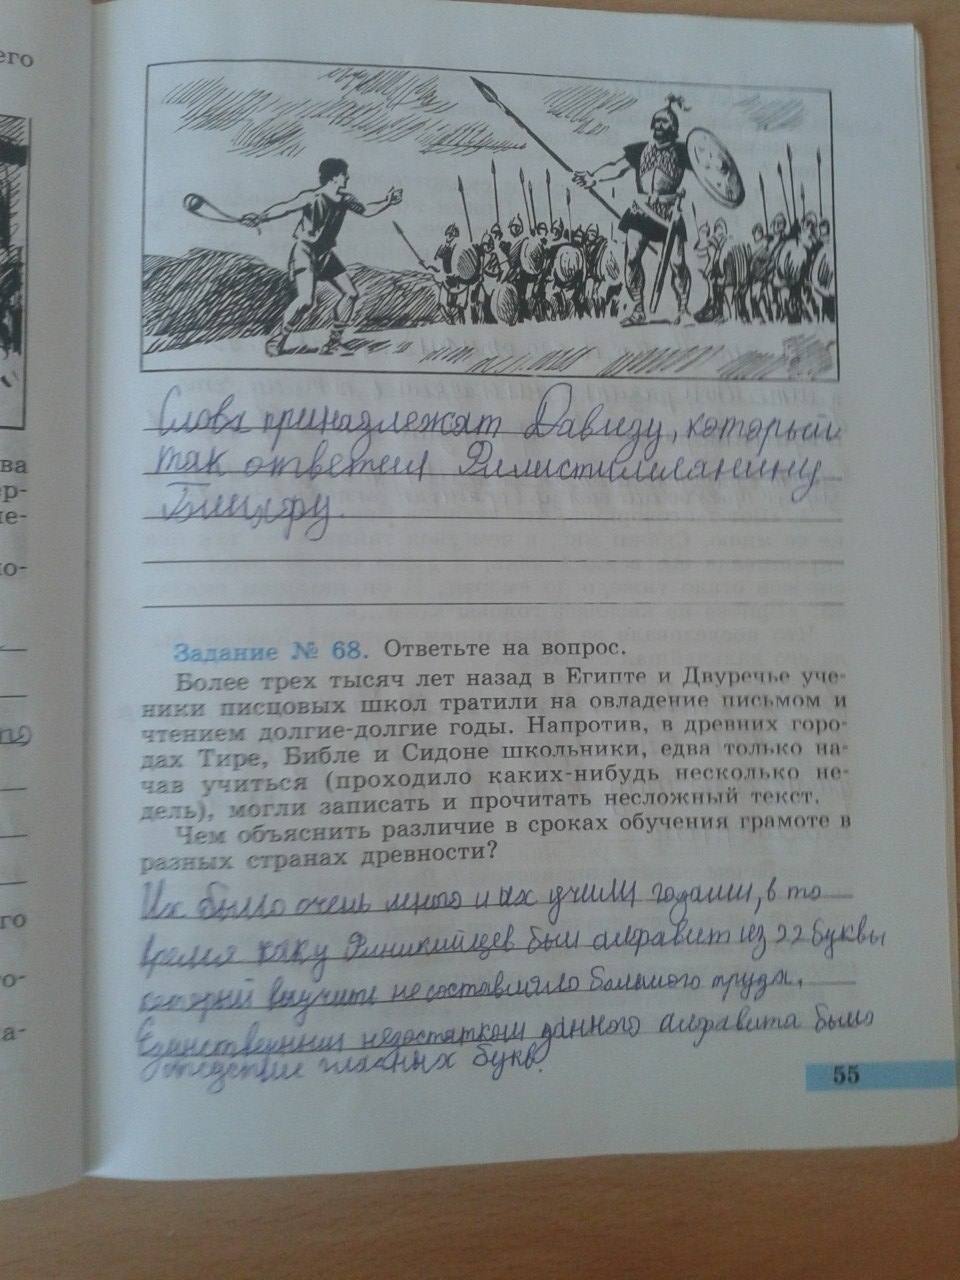 его
ва
ер-
ле-
по-
го
о-
а-
Слова принадлежат Давиду, который
так ответил Филистимланину
Задание № 68. Ответьте на вопрос.
Более трех тысяч лет назад в Египте и Двуречье уче-
ники писцовых школ тратили на овладение письмом и
чтением долгие-долгие годы. Напротив, в древних горо-
дах Тире, Библе и Сидоне школьники, едва только на-
чав учиться (проходило каких-нибудь несколько не-
дель), могли записать и прочитать несложный текст.
Чем объяснить различие в сроках обучения грамоте в
разных странах древности?
Их было очень много и их учили годами, в то
время как у Финикийцев был алфавит из 22 буквы
который выучить не составляло большого труда.
Единственным недостатком данного алфавита было
отсдствие гласных букв.
55